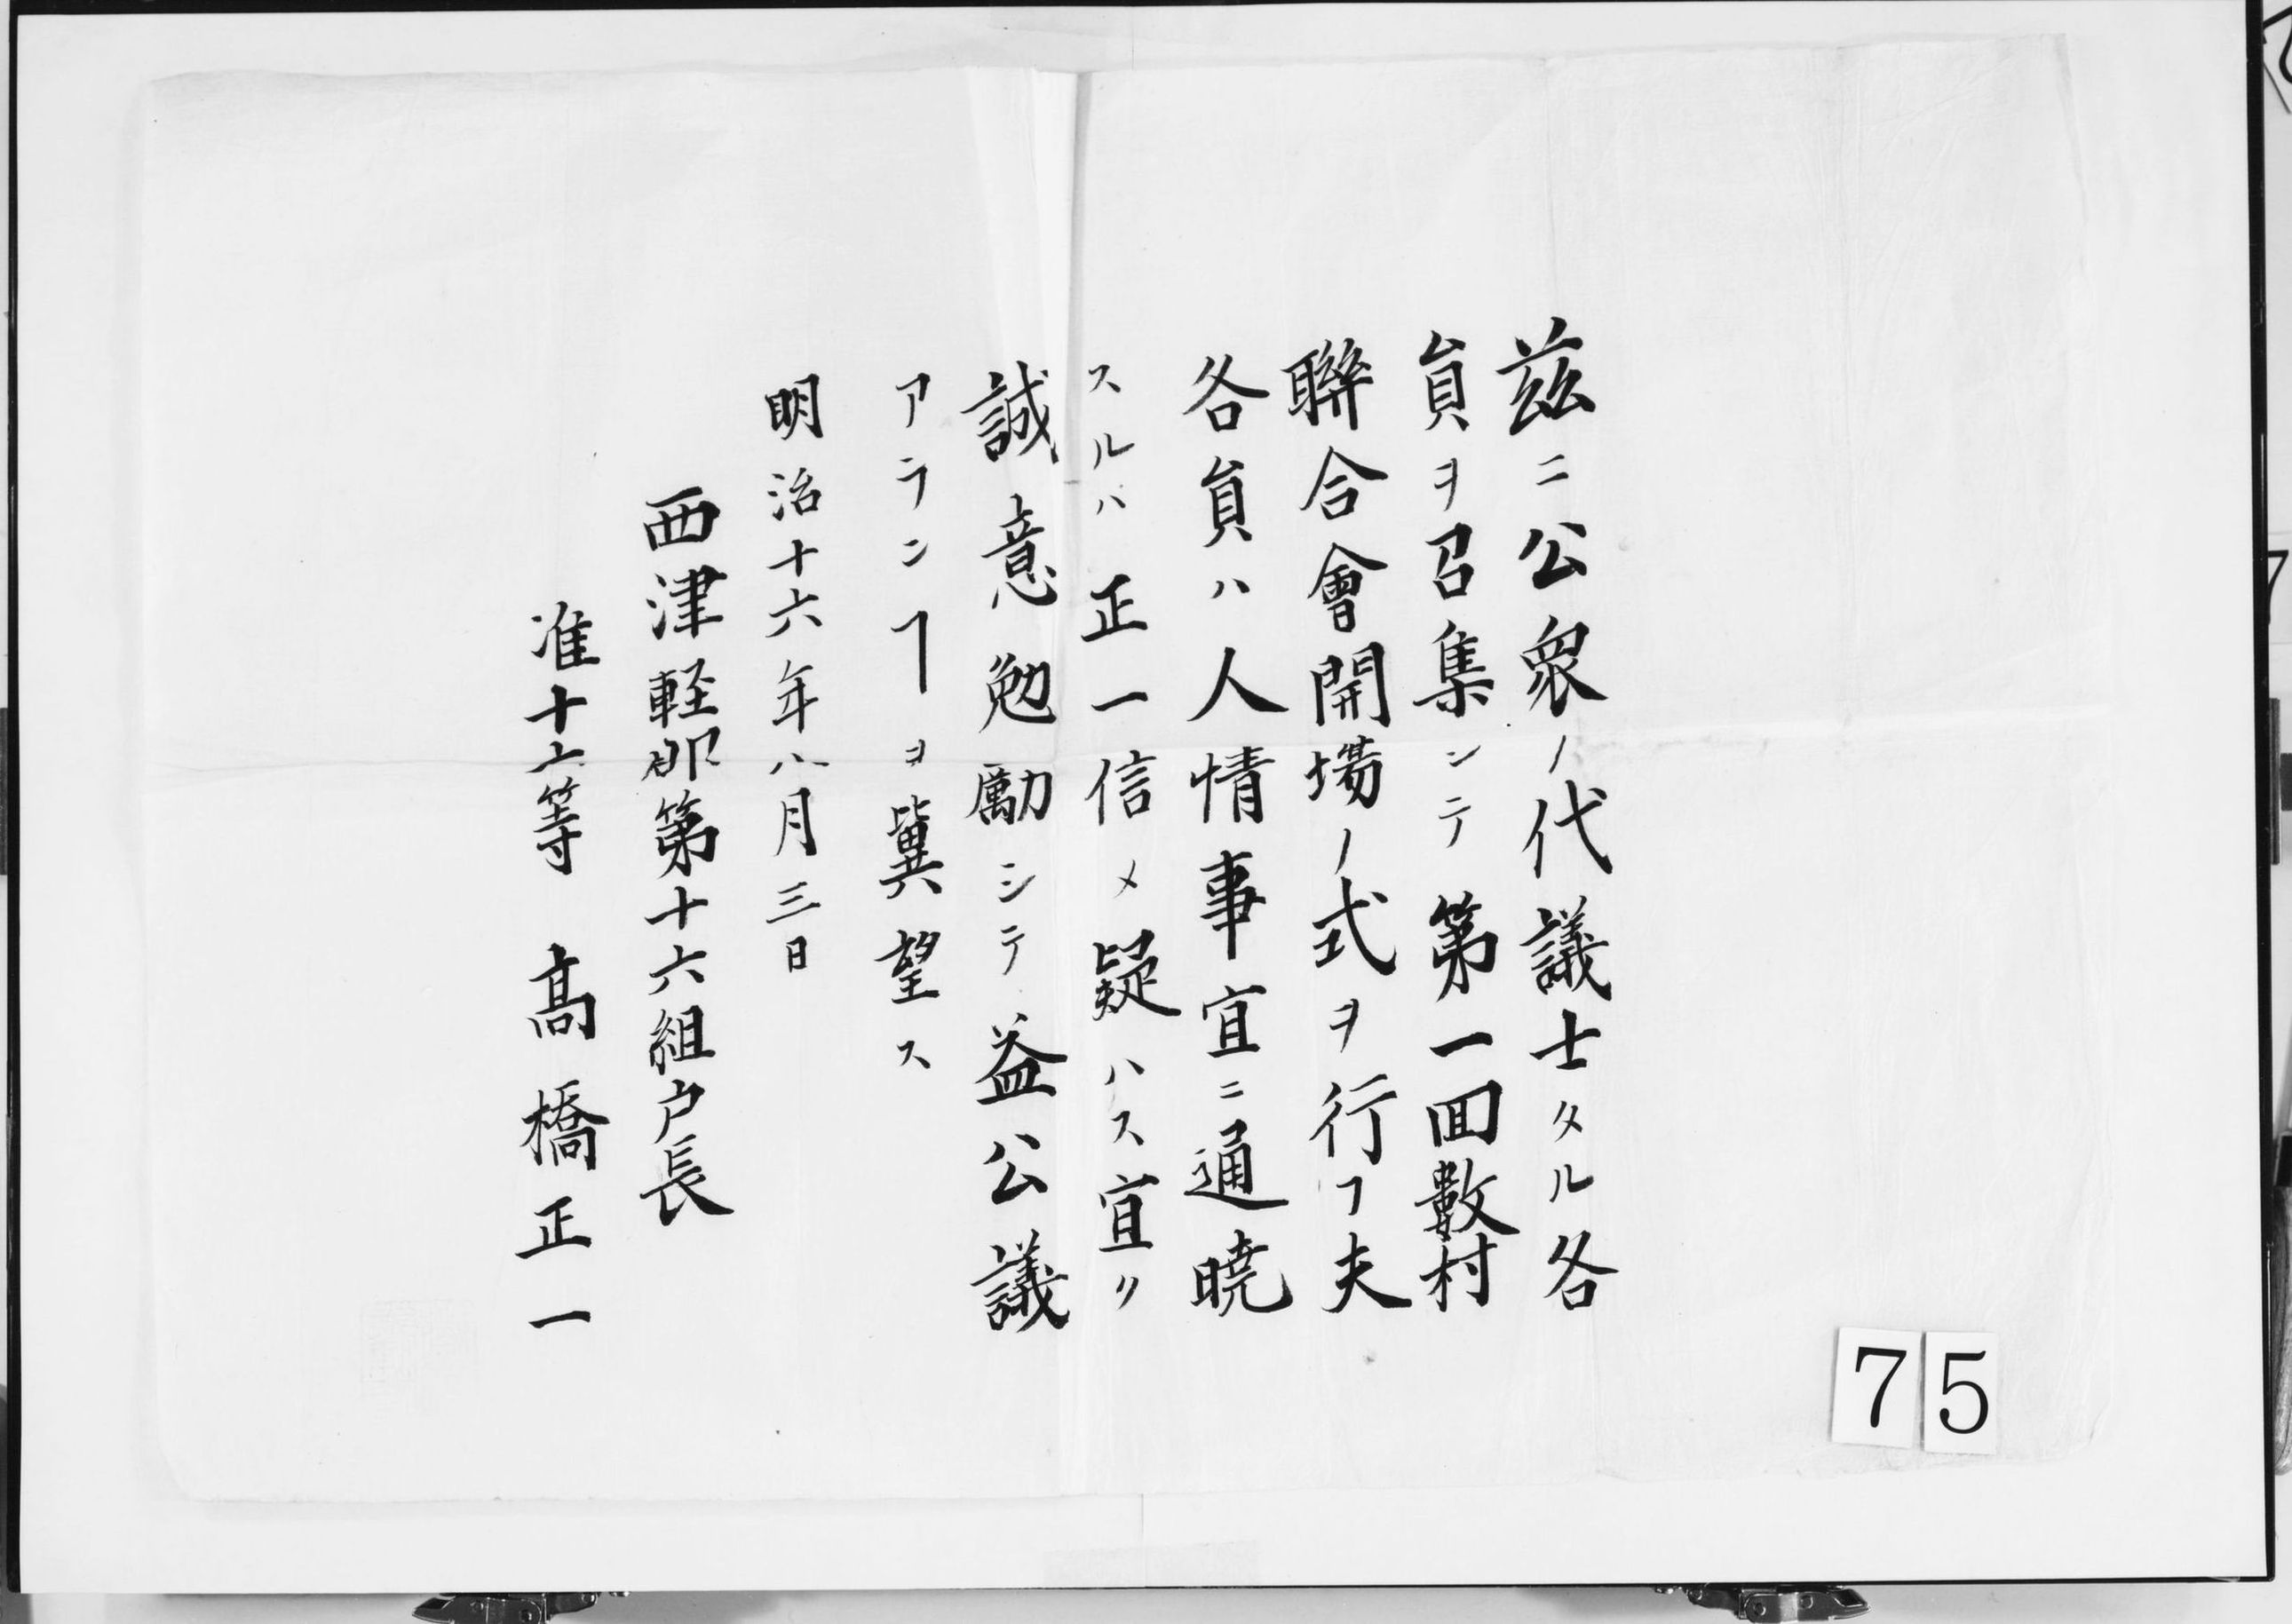 玆ニ公衆ノ代議士タル各
員ヲ召集シテ第一回數村
聯合會開塲ノ式ヲ行フ夫
各員ハ人情事宜ニ通暁
スルハ正一信メ疑ハス宜ク
誠意勉勵シテ益公議
アランヿヲ冀望ス
明治十六年八月三日
西津軽郡第十六組戸長
准十六等 髙橋正一
75